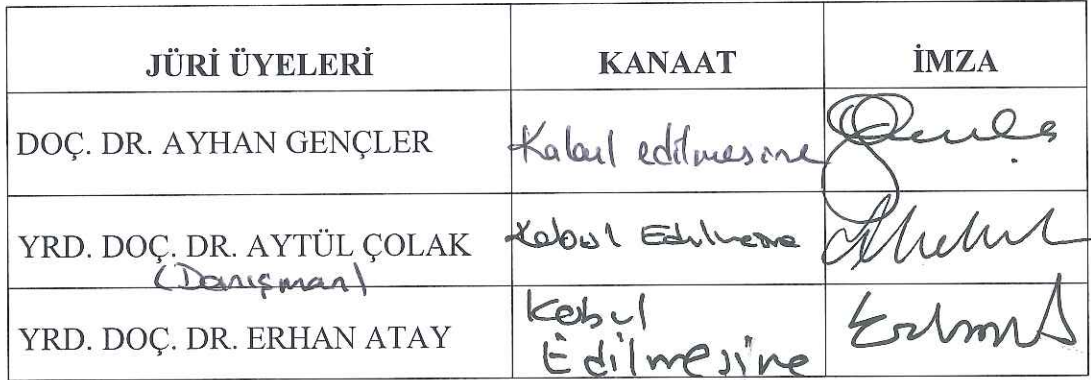 JÜRİ ÜYELERİ KANAAT İMZA
DOÇ. DR. AYHAN GENÇLER Kabul edilmesine
YRD. DOÇ. DR. AYTÜL ÇOLAK Kabul Edilmesine
(Danışman)
YRD. DOÇ. DR. ERHAN ATAY Kabul
Edilmesine